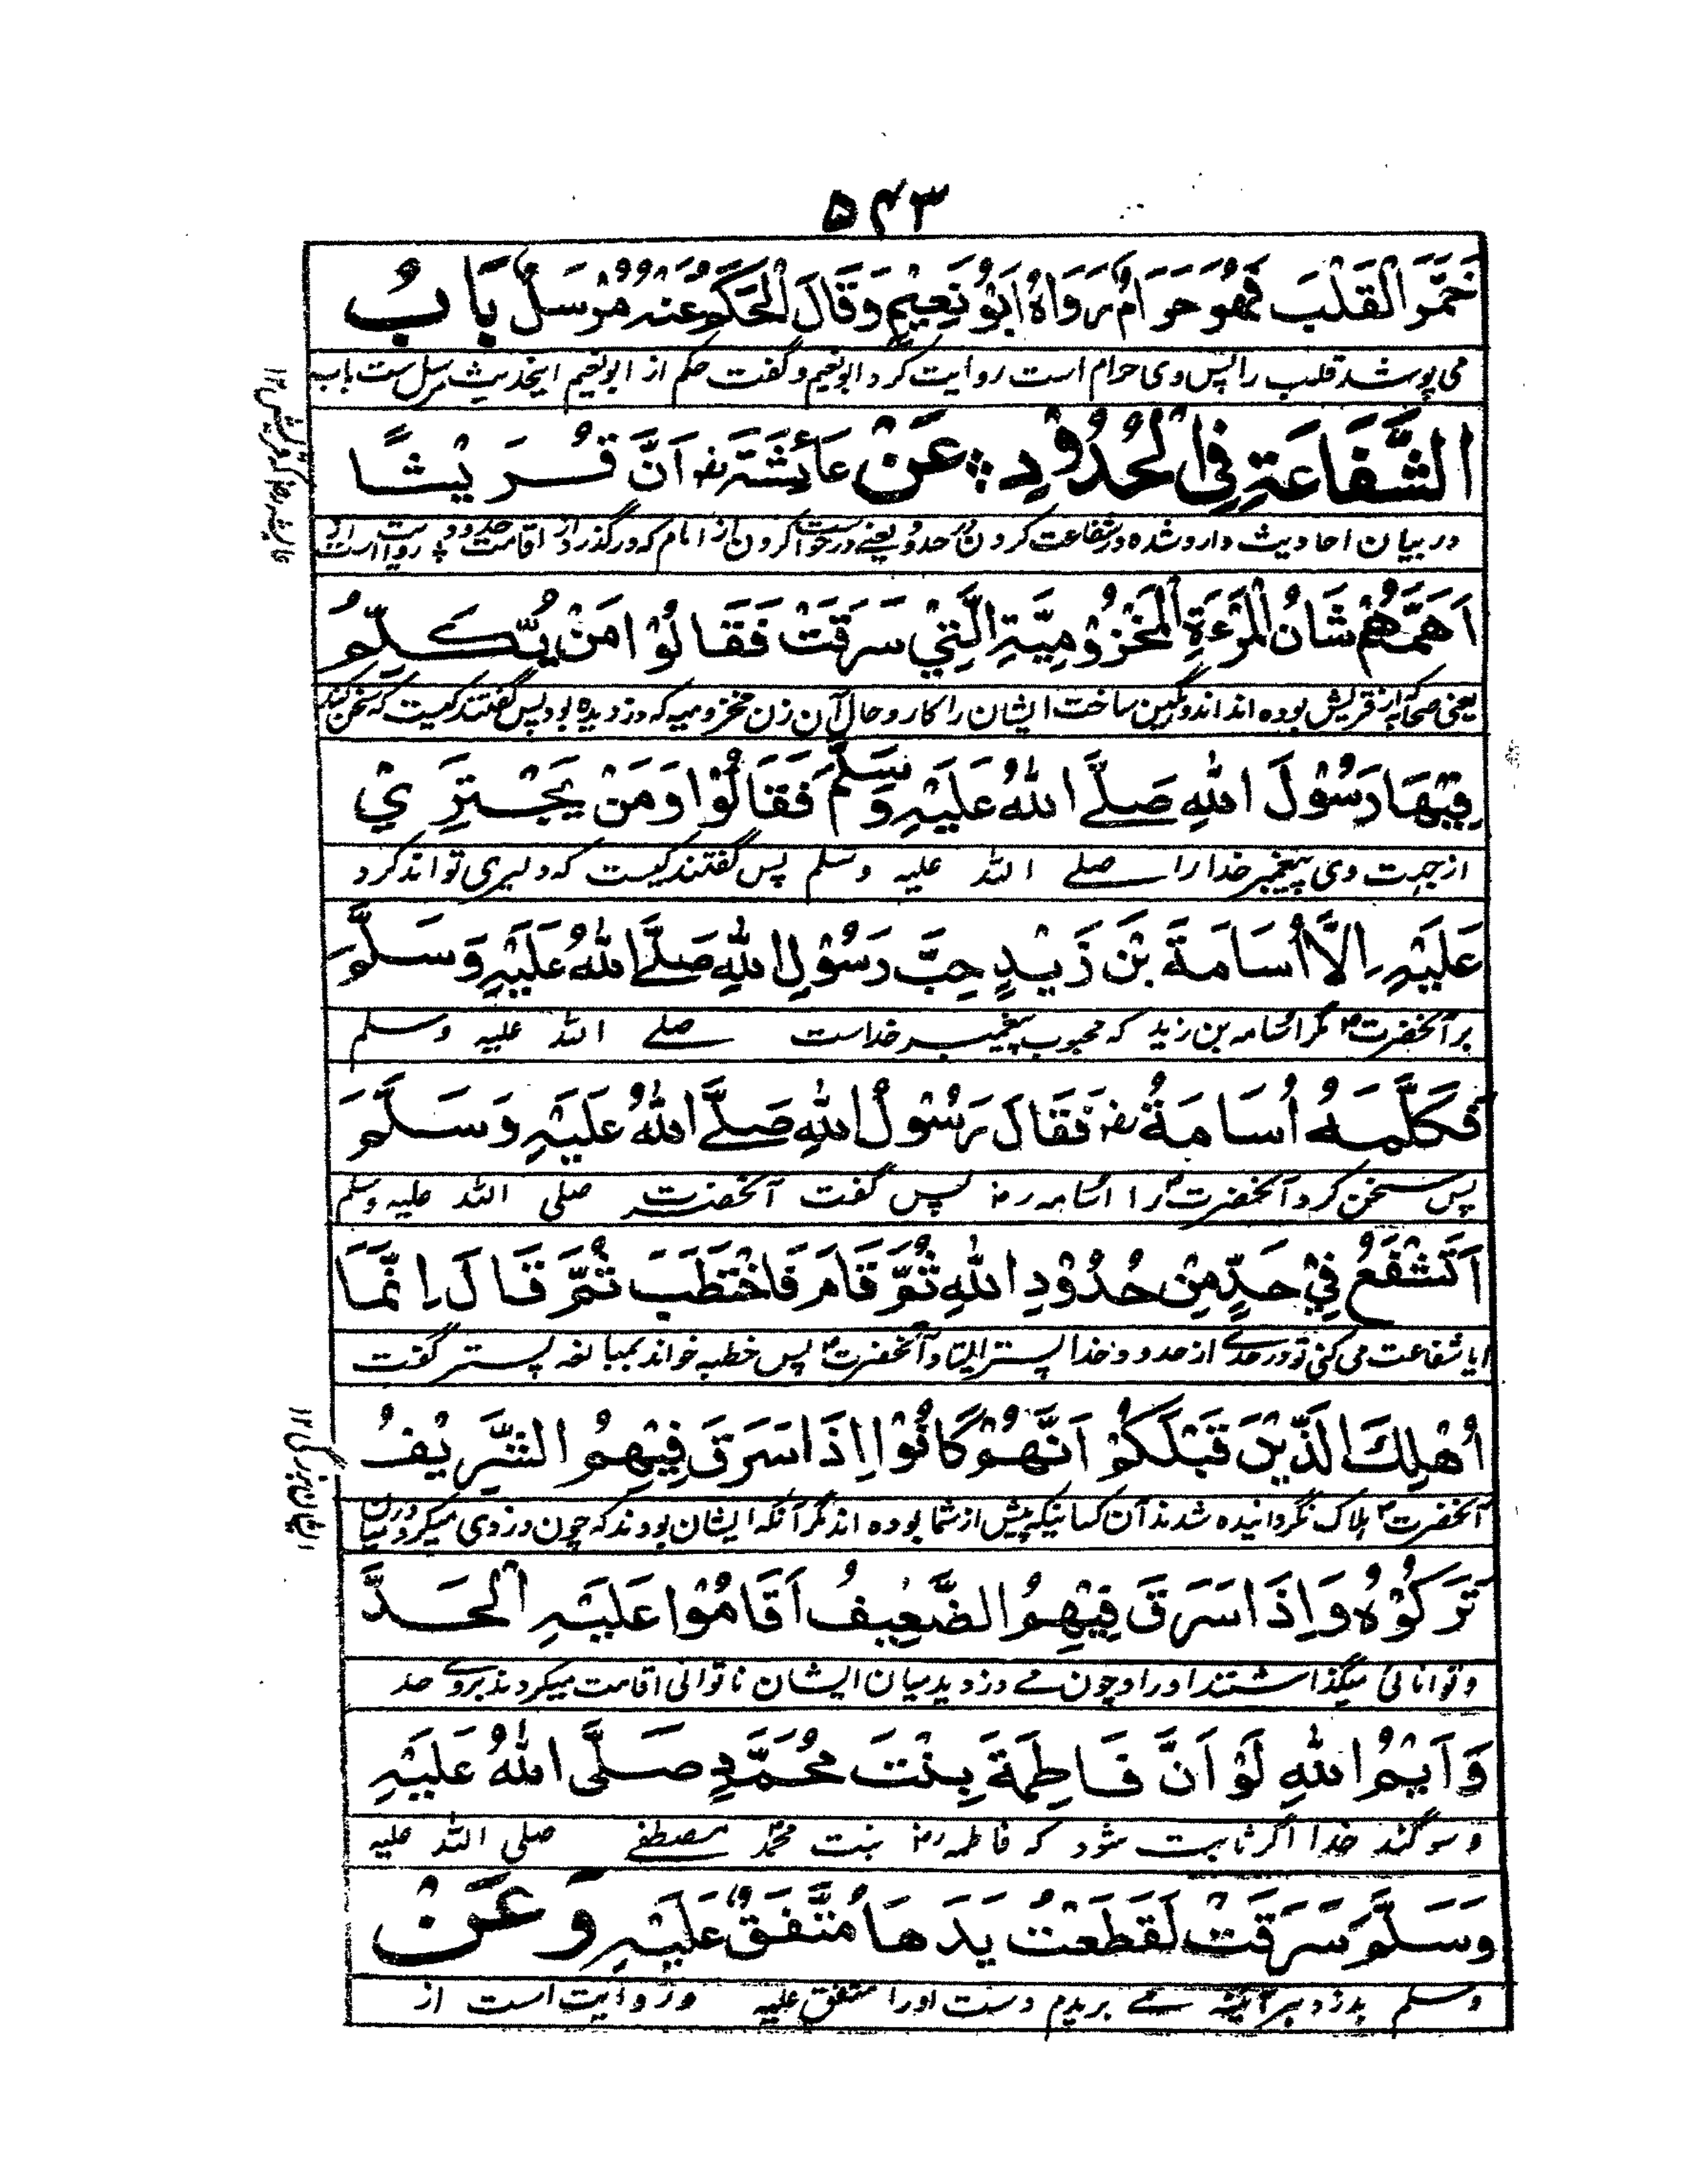 ۵۴۳
خَمَّرَ الْقَلْبَ فَهُوَ حَرَامٌ رَوَاهُ اَبُوْ نَعِيْمٍ وَقَالَ الْحَكَمُ عَنْهُ مُرْسَلٌ بَابُ
می پوشد قلب را پس وی حرام است روایت کرد ابو نعیم و گفت حکم از ابو نعیم اینحدیث مرسل ست باب
الشَّفَاعَةِ فِي الْحُدُوْدِ عَنْ عَائِشَةَ رضـ اَنَّ قُرَيْشًا
در بیان احادیث وارد شده در شفاعت کردن در حدود یعنے درخواست کردن از امام که درگذرد از اقامت حدود روایت است از
اَهَمَّهُمْ شَانُ الْمَرْءَةِ الْمَخْزُوْمِيَّةِ الَّتِيْ سَرَقَتْ فَقَالُوْا مَنْ يُّكَلِّمُ
یعنی صحابه از قریش بوده اند اندوگین ساخت ایشان را کار و حال آن زن مخزومیه که دزدیده بود پس گفتند کیست که سخن کند
فِيْهَا رَسُوْلَ اللهِ صَلَّے اللهُ عَلَيْهِ وَسَلَّمَ فَقَالُوْا وَمَنْ يَجْتَرِيْ
از جهت وی پیغمبر خدا را صلے الله علیه وسلم پس گفتند کیست که دلیری تواند کرد
عَلَيْهِ اِلَّا اُسَامَةَ بْنَ زَيْدٍ حِبَّ رَسُوْلِ اللهِ صَلَّے اللهُ عَلَيْهِ وَسَلَّمَ
بر آنحضرتؐ مگر اسامه بن زید که محبوب پیغمبر خداست صلے الله علیه وسلم
فَكَلَّمَهُ اُسَامَةُ رضـ فَقَالَ رَسُوْلُ اللهِ صَلَّے اللهُ عَلَيْهِ وَسَلَّمَ
پس سخن کرد آنحضرتؐ را اسامه رضـ پس گفت آنحضرت صلی الله علیه وسلم
اَتَشْفَعُ فِيْ حَدٍّ مِنْ حُدُوْدِ اللهِ ثُمَّ قَامَ فَاخْتَطَبَ ثُمَّ قَالَ اِنَّمَا
ایا شفاعت می کنی تو در حدے از حدود خدا پستر ایستاد آنحضرتؐ پس خطبه خواند بمبالغه پستر گفت
اُهْلِكَ الَّذِيْنَ قَبْلَكُمْ اَنَّهُمْ كَانُوْا اِذَا سَرَقَ فِيْهِمُ الشَّرِيْفُ
آنحضرتؐ هلاک نگردانیده شدند آن کسانیکه پیش از شما بوده اند مگر آنکه ایشان بودند که چون دزدی میکرد در میان
تَرَكُوْهُ وَاِذَا سَرَقَ فِيْهِمُ الضَّعِيْفُ اَقَامُوْا عَلَيْهِ الْحَدَّ
و توانائی میگذاشتند اورا و چون مے دزدید میان ایشان ناتوانی اقامت میکردند بروے حد
وَاَيْمُ اللهِ لَوْ اَنَّ فَاطِمَةَ بِنْتَ مُحَمَّدٍ صَلَّى اللهُ عَلَيْهِ
و سوگند خدا اگر ثابت شود که فاطمه رضـ بنت محمدؐ مصطفے صلی الله علیه
وَسَلَّمَ سَرَقَتْ لَقَطَعْتُ يَدَهَا مُتَّفَقٌ عَلَيْهِ وَعَنْ
وسلم بدزدد هر آئینه مے بریدم دست اورا متفق علیه و روایت است از